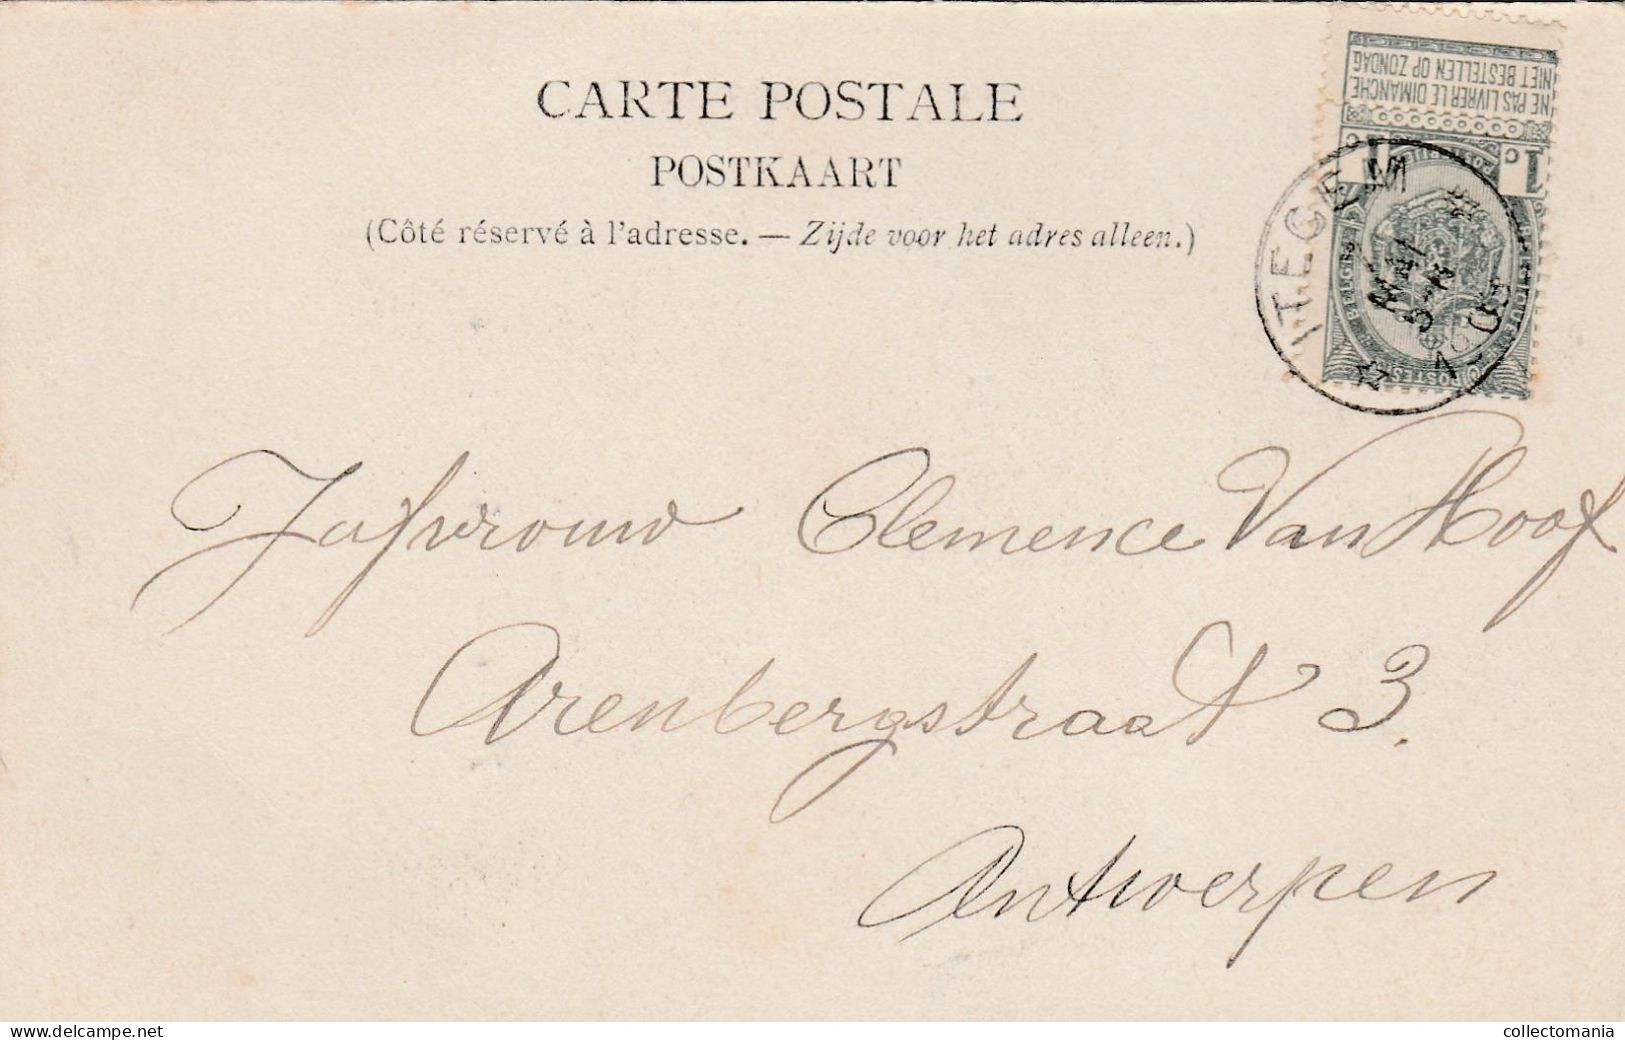 CARTE POSTALE
POSTKAART
(Côté réservé à l'adresse. — Zijde voor het adres alleen.)
NE PAS LIVRER LE DIMANCHE
NIET BESTELLEN OP ZONDAG
1c 1c
ITEGEM
Jufvrouw Clemence Van Hoof
Arenbergstraat 3.
Antwerpen
www.delcampe.net
collectomania